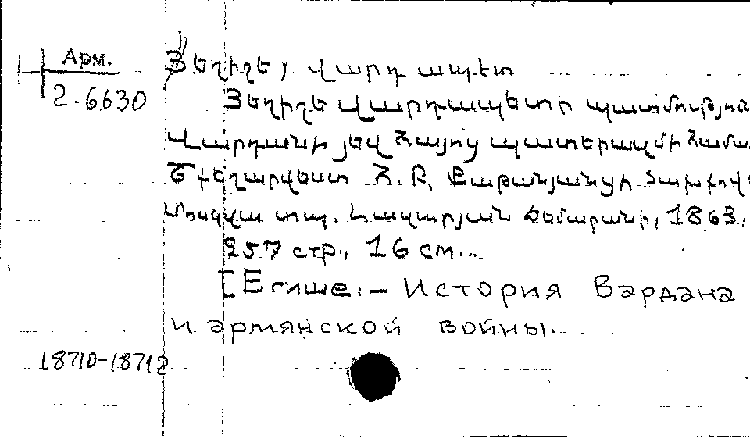 Арм.
2-6630
Յեղիշե, վարդապետ
Յեղիշե վարդապետի պատմություն
Վարդանի յեվ հայոց պատերազմի համա
Մոսկվա տպ. Լազարյան ճեմարանի, 1863.
257 стр., 16 см.
[Егише. - История Вардана
и армянской войны.
18710-18712